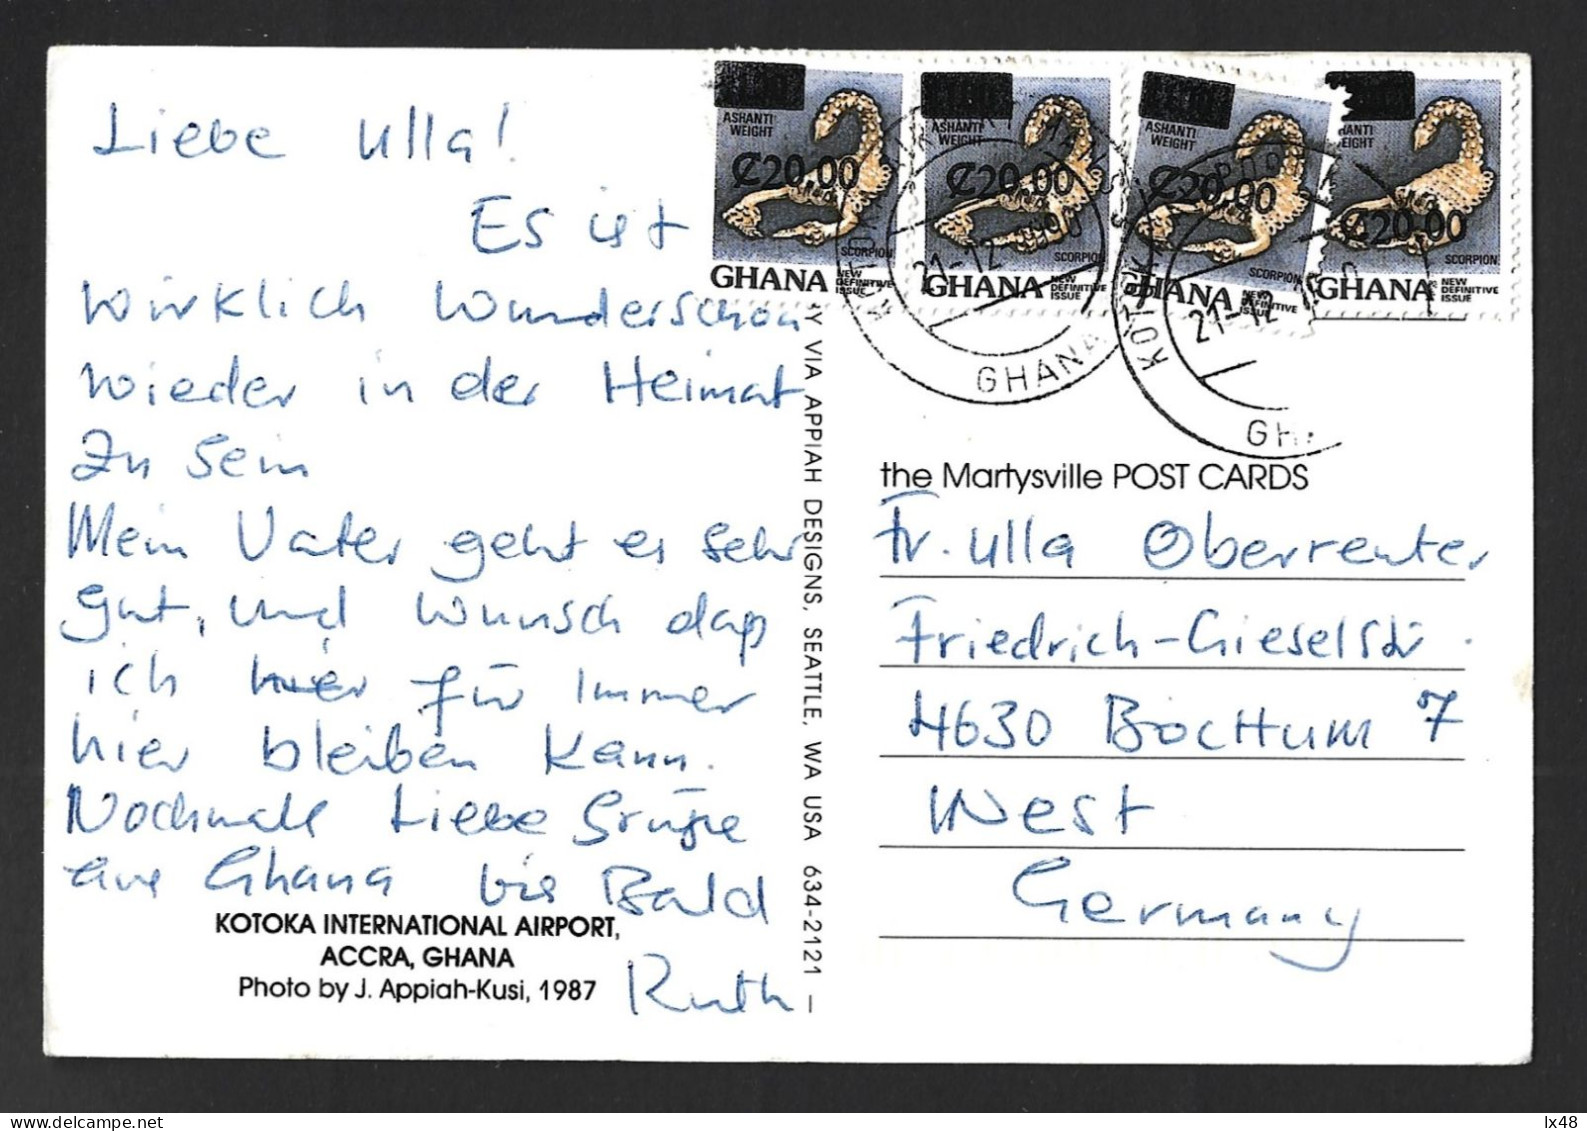 Liebe Ulla!
Es ist
wirklich wunderschön
wieder in der Heimat
zu sein
Mein Vater geht es sehr
gut, und wunsch daß
ich hier für Immer
hier bleiben kann.
Nochmals Liebe Grüße
aus Ghana bis Bald
Ruth
KOTOKA INTERNATIONAL AIRPORT,
ACCRA, GHANA
Photo by J. Appiah-Kusi, 1987
VIA APPIAH DESIGNS, SEATTLE, WA USA 634-2121 —
ASHANTI WEIGHT
₵20.00
SCORPION
GHANA NEW DEFINITIVE ISSUE
ASHANTI WEIGHT
₵20.00
SCORPION
GHANA NEW DEFINITIVE ISSUE
ASHANTI WEIGHT
₵20.00
SCORPION
GHANA NEW DEFINITIVE ISSUE
HANTI EIGHT
₵20.00
SCORPION
GHANA NEW DEFINITIVE ISSUE
21-12
GHANA
21-12
GH
the Martysville POST CARDS
Fr. Ulla Oberreuter
Friedrich-Gieselstr.
4630 Bochum 7
West
Germany
lx48
delcampe.net